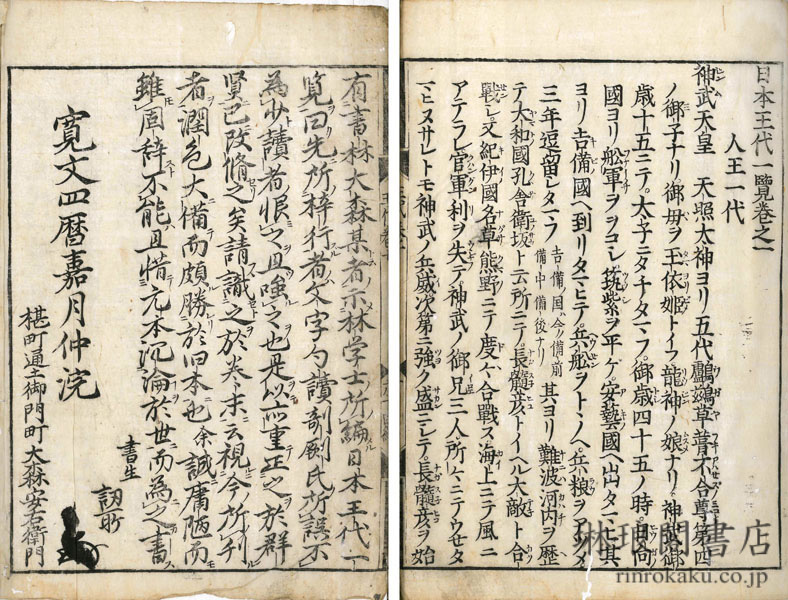 日本王代一覧巻之一
人王一代
神武天皇 天照太神ヨリ五代鸕鷀草葺不合尊第四
ノ御子ナリ御母ヲ玉依姫トイフ龍神ノ娘ナリ神武御
歳十五ニテ太子ニタチタマフ御歳四十五ノ時日向
國ヨリ舩軍ヲヲコシ筑紫ヲ平ケ安藝國ヘ出タマヒ其
ヨリ吉備國ヘ到リタマヒテ兵舩ヲトヽノヘ兵粮ヲアツメ
三年逗留シタマフ 吉備ノ国ハ今ノ備前備中備後ナリ 其ヨリ難波河内ヲ歴
テ大和國孔舎衛坂ト云所ニテ長髄彦トイヘル大敵ト合
戰シ又紀伊國名草熊野ニテ度々合戰ス海上ニテ風ニ
アテラレ官軍利ヲ失テ神武ノ御兄三人所々ニテウセタ
マヒヌサレトモ神武ノ兵威次第ニ強ク盛ニシテ長髄彦ヲ始
有書林大森某者示林学士所編日本王代一
覧曰先所梓行者文字句讀剞劂氏所誤不
為少讀者恨之且嗤之也是以所重正之於群
賢已改脩之矣請識之於巻末云視今所刊
者潤色大備而頗勝於旧本也余誠庸陋而
雖固辞不能且惜元本沉淪於世而為之書
書生
寛文四暦嘉月仲浣
椹町通土御門町大森安右衛門
林琅閣書店
rinrokaku.co.jp